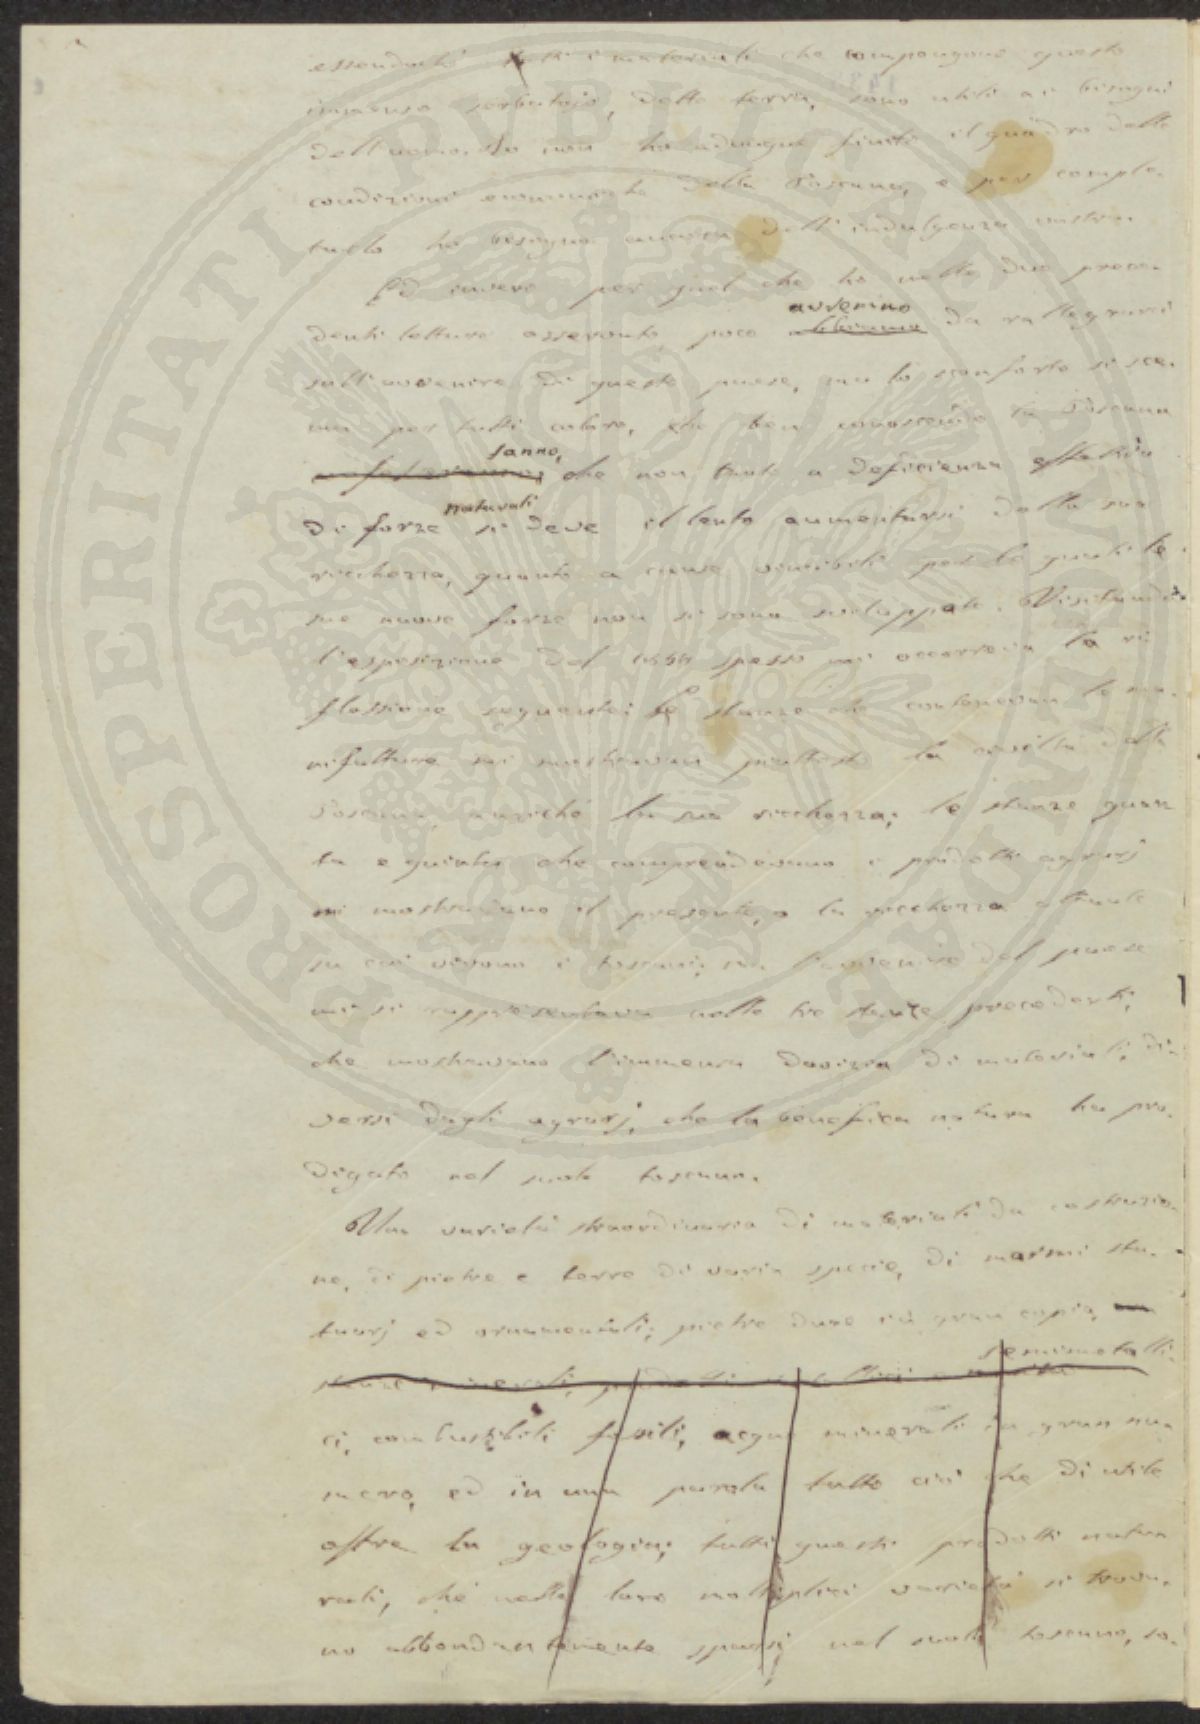 essendoché tutti i materiali che compongono questo
immenso serbatojo, detto terra, sono utili ai bisogni
dell'uomo. Io non ho adunque finito il quadro delle
condizioni economiche della Toscana, e per comple-
tarlo ho bisogno ancora dell'indulgenza vostra.
Ed invero per quel che ho nelle due prece-
avremmo
denti letture asserito, poco da rallegrarci
sull'avvenire di questo paese, ma lo sconforto si sce-
ma per tutti coloro, che ben conoscendo la Toscana
sanno,
che non tanto a deficienza effettiva
naturali
di forze si deve il lento aumentarsi della sua
ricchezza, quanto a cause vincibili per le quali le
sue nuove forze non si sono sviluppate. Visitando
l'esposizione del 1854 spesso mi occorreva la ri-
flessione seguente: le stanze che contenevan le ma-
nifatture mi mostravan piuttosto la civiltà della
Toscana, anziché la sua ricchezza; le stanze quar-
ta e quinta che comprendevano i prodotti agrarj
mi mostravano il presente, o la ricchezza attuale
su cui vivono i toscani; ma l'avvenire del paese
mi si rappresentava nelle tre stanze precedenti,
che mostravano l'immensa dovizia di materiali, di-
versi dagli agrarj, che la benefica natura ha pro-
digato nel suolo toscano.
Una varietà straordinaria di materiali da costruzio-
ne, di pietre e terre di varia specie, di marmi sta-
tuarj ed ornamentali; pietre dure in gran copia,
semimetalli-
ci, combustibili fossili, acque minerali in gran nu-
mero, ed in una parola tutto ciò che di utile
offre la geologia; tutti questi prodotti natu-
rali, che nelle loro molteplici varietà si trova-
no abbondantemente sparsi nel suolo toscano, so-
PROSPERITATI PVBLICAE AVGENDAE